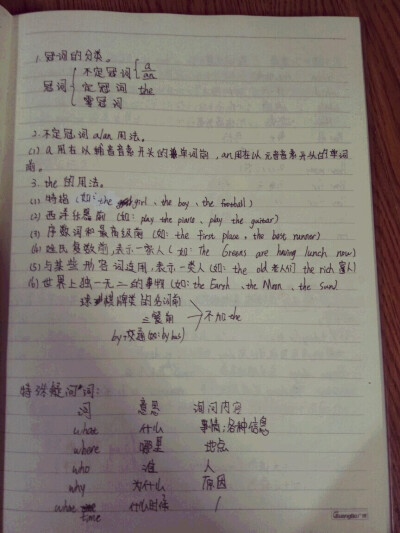 1.冠词的分类。
冠词 不定冠词 a an
定冠词 the
零冠词
2.不定冠词 a/an 用法。
(1) a 用在以辅音音素开头的单词前, an用在以元音音素开头的单词
前。
3. the 的用法。
(1) 特指 (如: the girl、the boy、the football)
(2) 西洋乐器前 (如: play the piano、play the guitar)
(3) 序数词和最高级前 (如: the first place、the best runner)
(4) 姓氏复数前,表示一家人 (如: The Greens are having lunch now)
(5) 与某些形容词连用,表示一类人 (如: the old 老人们 the rich 富人)
(6) 世界上独一无二的事物 (如: the Earth、the Moon、the Sun)
球类棋牌类的名词前
三餐前 不加the
by+交通(如: by bus)
特殊疑问词:
词 意思 询问内容
what 什么 事情,各种信息
where 哪里 地点
who 谁 人
why 为什么 原因
what time 什么时候 /